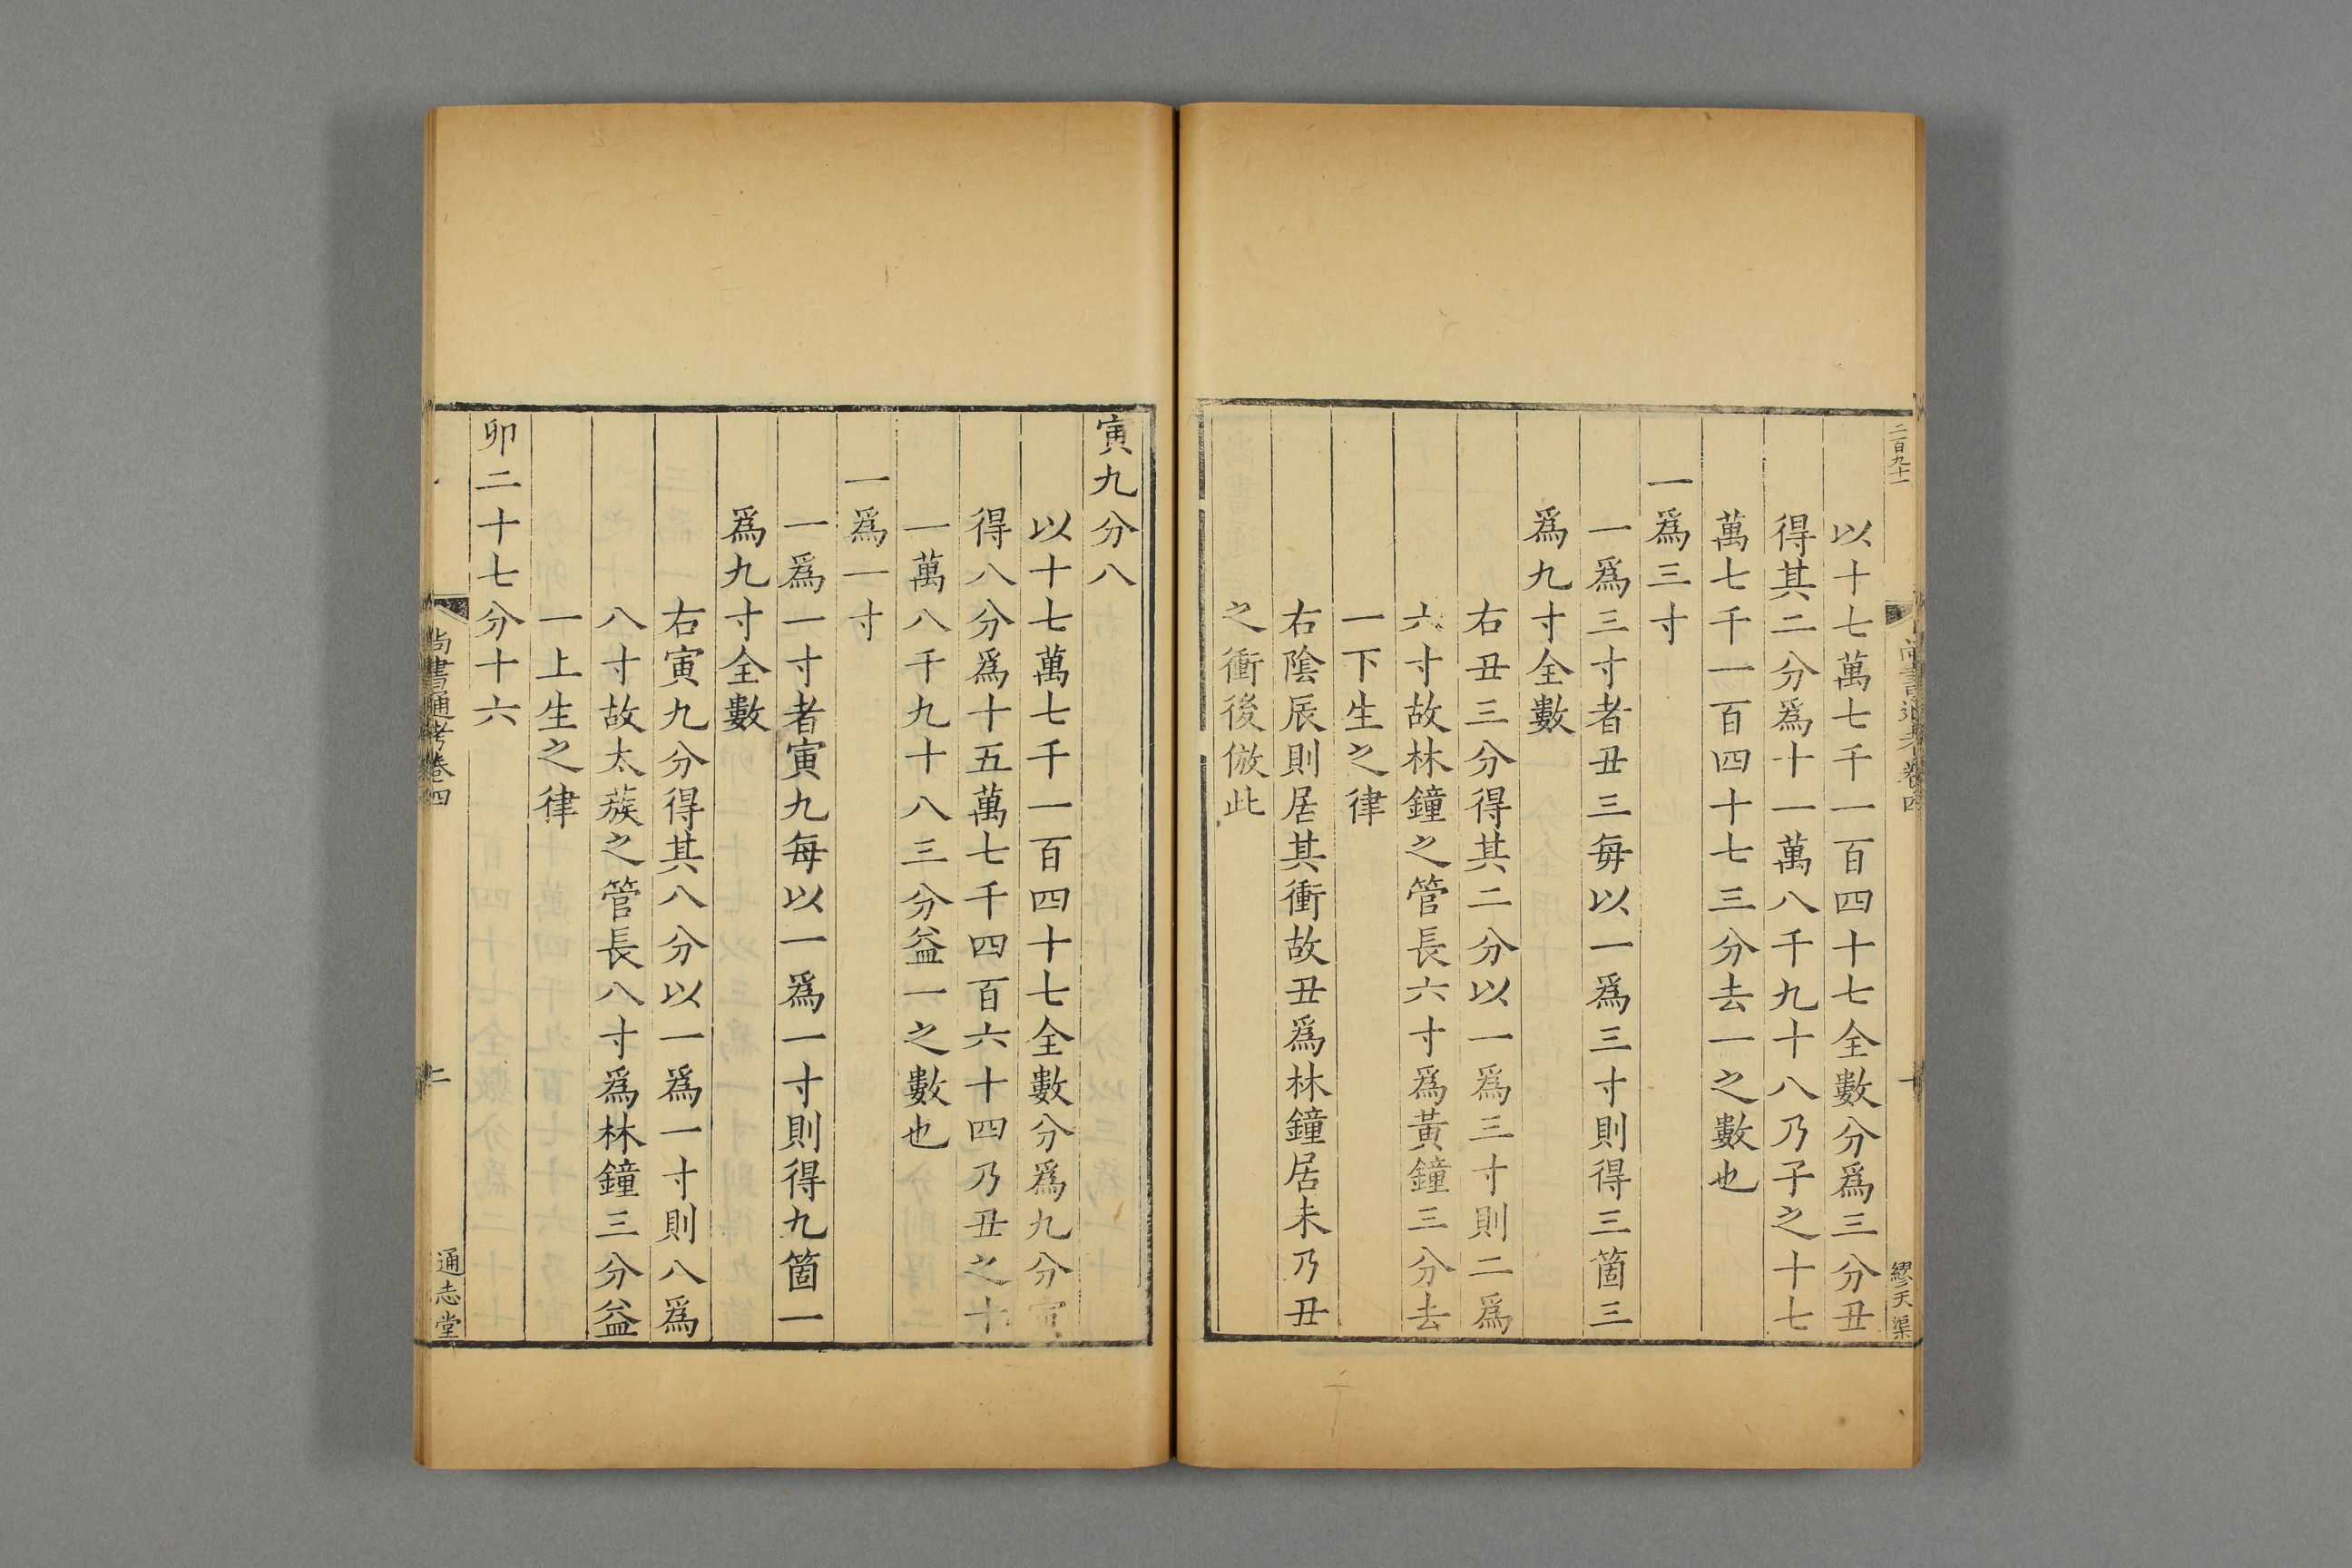 二百九十一
繆天渠
以十七萬七千一百四十七全數分爲三分丑
得其二分爲十一萬八千九十八乃子之十七
萬七千一百四十七三分去一之數也
一爲三寸
一爲三寸者丑三每以一爲三寸則得三箇三
爲九寸全數
右丑三分得其二分以一爲三寸則二爲
六寸故林鐘之管長六寸爲黃鐘三分去
一下生之律
右陰辰則居其衝故丑爲林鐘居未乃丑
之衝後倣此
寅九分八
以十七萬七千一百四十七全數分爲九分寅
得八分爲十五萬七千四百六十四乃丑之十
一萬八千九十八三分益一之數也
一爲一寸
一爲一寸者寅九每以一爲一寸則得九箇一
爲九寸全數
右寅九分得其八分以一爲一寸則八爲
八寸故太蔟之管長八寸爲林鐘三分益
一上生之律
卯二十七分十六
尚書通考卷四
二
通志堂